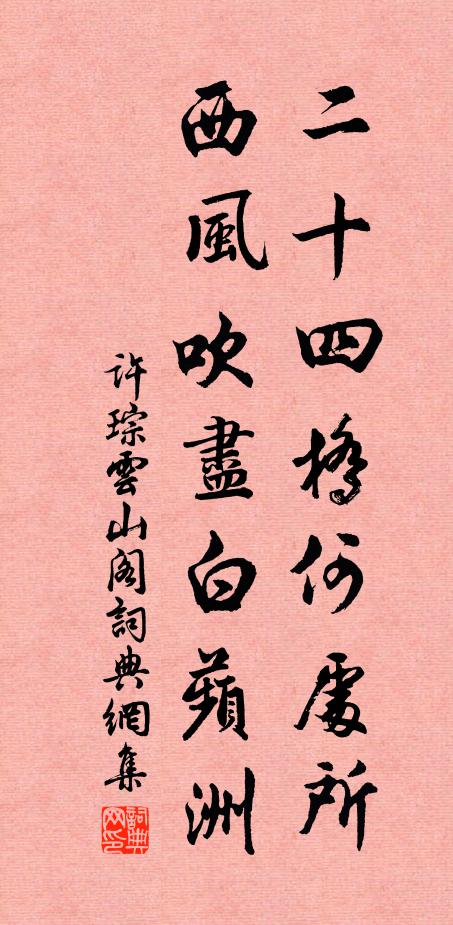 二十四橋何處所
西風吹盡白蘋洲
許琮雲山閣詞典網集
詞典网印